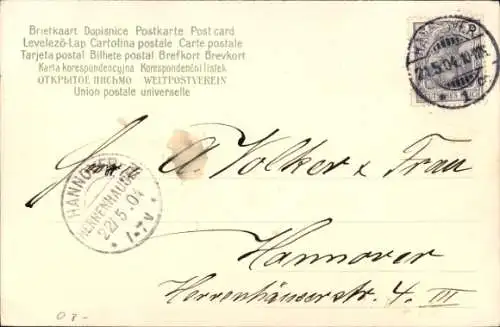 Briefkaart Dopisnice Postkarte Post card
Levelező-Lap Cartolina postale Carte postale
Tarjeta postal Bilhete postal Brefkort Brevkort
Karta korespondencyjna Korespondenční lístek
ОТКРЫТОЕ ПИСЬМО WELTPOSTVEREIN
Union postale universelle
HANNOVER
21.5.04.
* 1 c.
Herrn A. Volker & Frau
HANNOVER
HERRENHAUSEN
22/5.04
* 1-7V *
Hannover
Herrenhäuserstr. 4. III